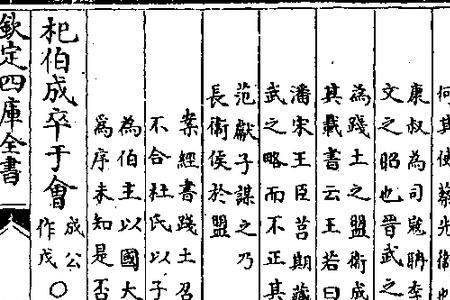 何其使蔡先衛也
康叔為司寇聃季
文之昭也晉武之
為踐土之盟衛成
其載書云王若曰
潘宋王臣莒期藏
武之略而不正其
范獻子謀之乃
長衛侯於盟
案經書踐土召
不合杜氏以子
為伯主以國大
爲序未知是否
杞伯成卒于會成公作戊○
欽定四庫全書